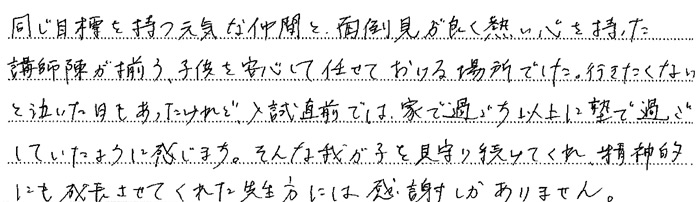 同じ目標を持つ元気な仲間と、面倒見が良く熱い心を持った
講師陣が揃う、子供を安心して任せておける場所でした。行きたくない
と泣いた日もあったけれど、入試直前では、家で過ごす以上に塾で過ご
していたように感じます。そんな我が子を見守り続けてくれ、精神的
にも成長させてくれた先生方には感謝しかありません。